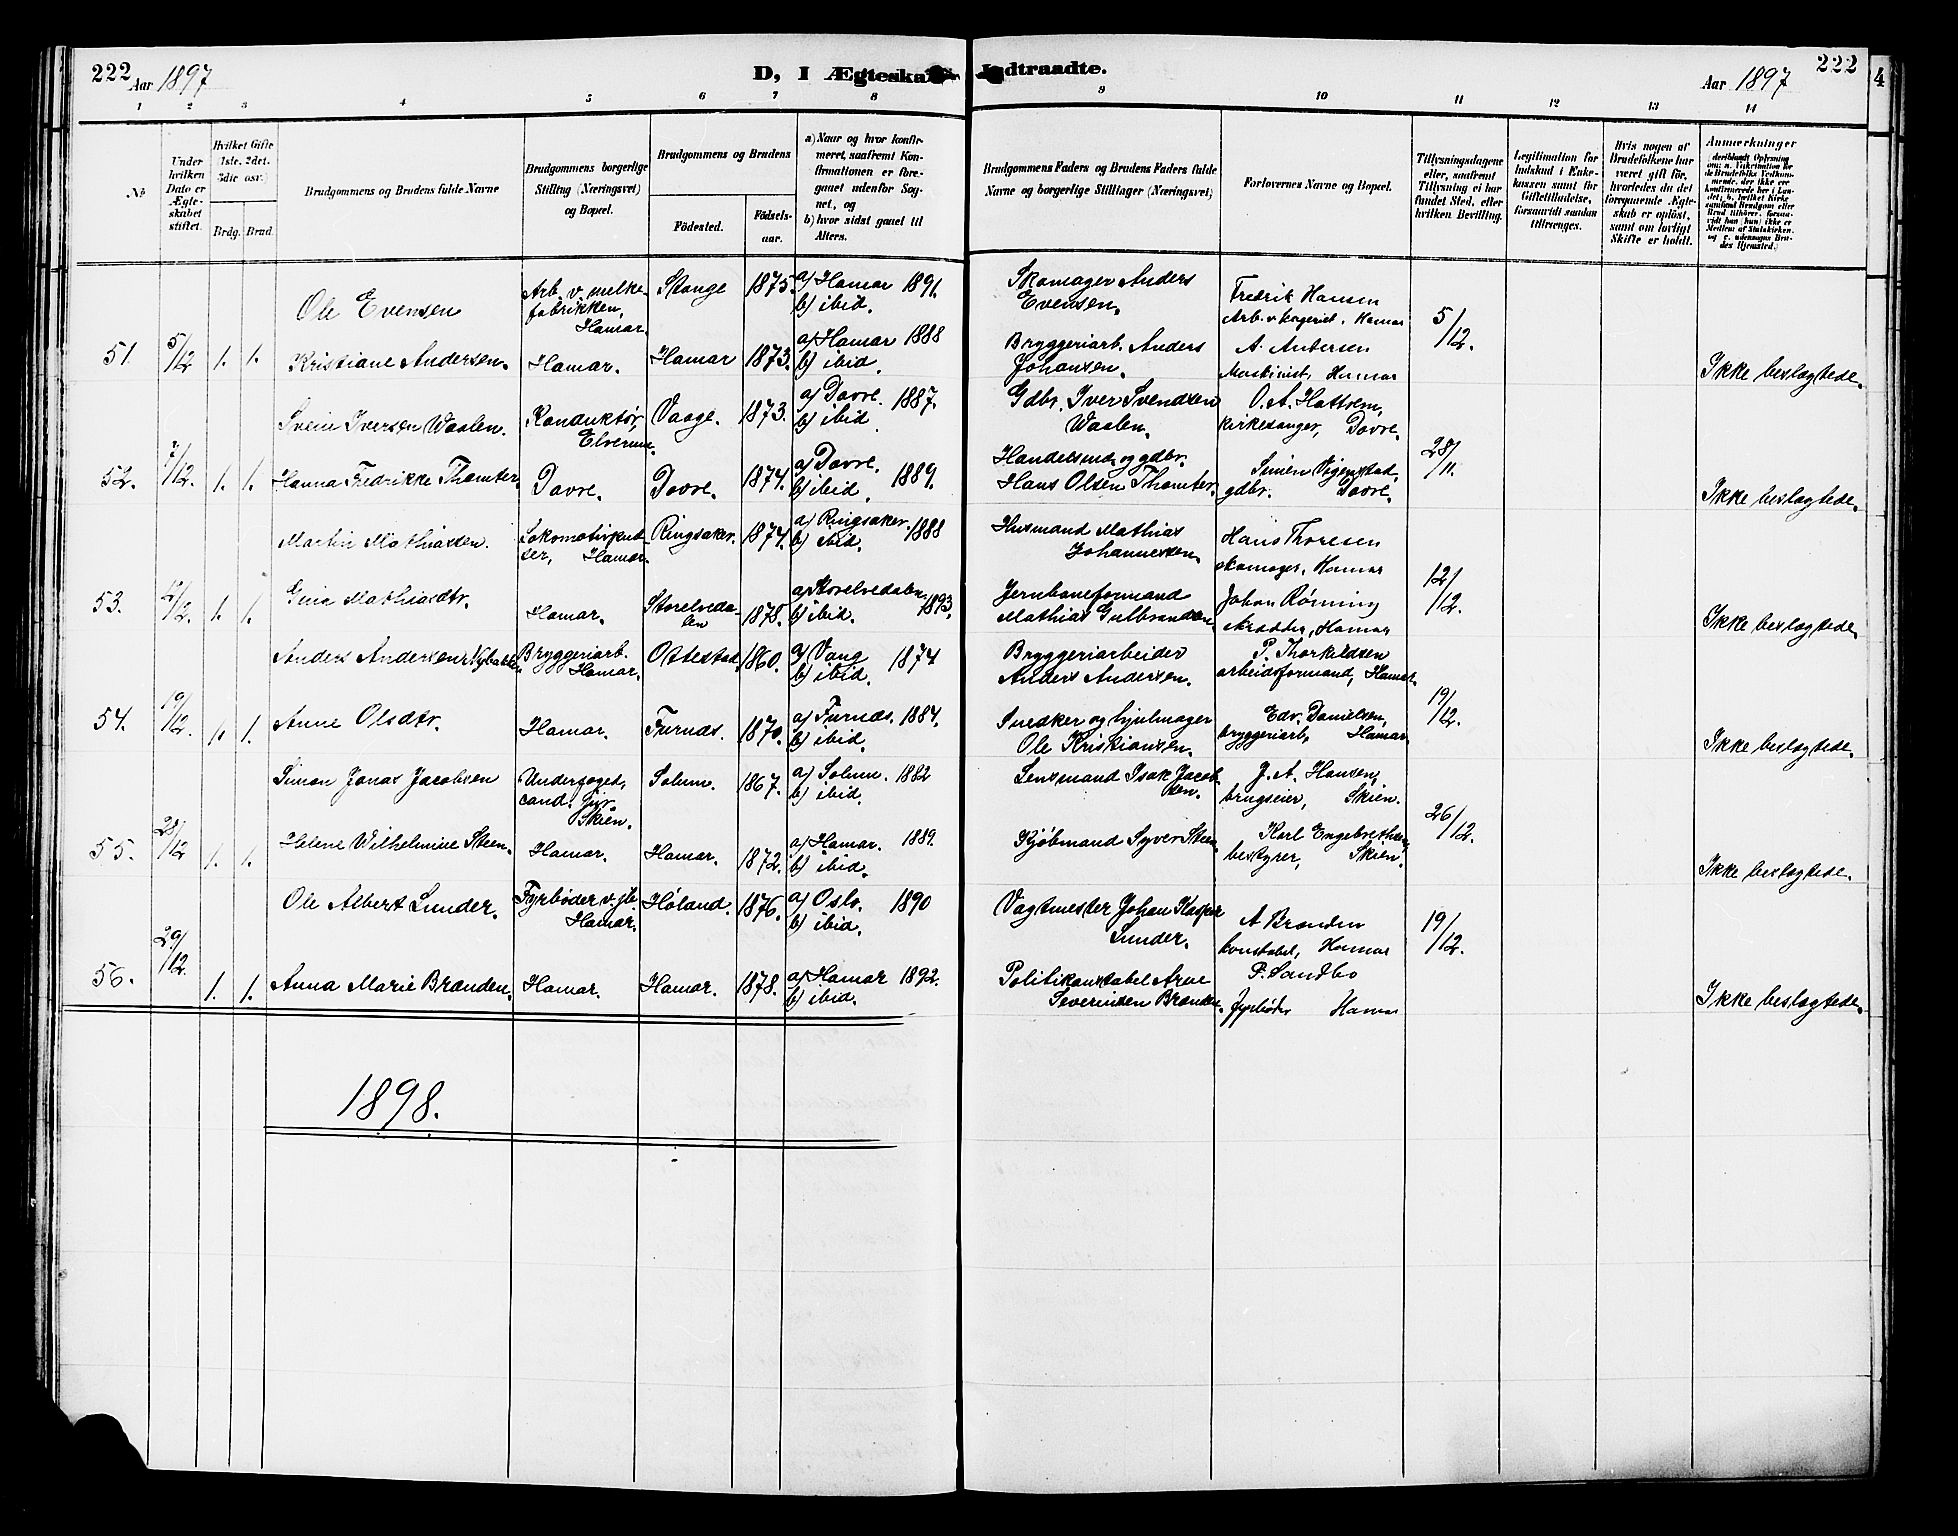 222
Aar 1897
D, I Ægteska
Indtraadte.
Aar 1897
222
4
1 2 3 4 5 6 7 8 9 10 11 12 13 14
No
Under hvilken Dato er Ægteskabet stiftet.
Hvilket Gifte 1ste, 2det, 3die osv.)
Brdg. Brud.
Brudgommens og Brudens fulde Navne
Brudgommens borgerlige Stilling (Næringsvei) og Bopæl.
Brudgommens og Brudens
Födested.
Födselsaar.
a) Naar og hvor konfirmeret, saafremt Konfirmationen er foregaaet udenfor Sognet, og
b) hvor sidst gaaet til Alters.
Brudgommens Faders og Brudens Faders fulde Navne og borgerlige Stillinger (Næringsvei)
Forlovernes Navne og Bopæl.
Tillysningsdagene eller, saafremt Tillysning ei har fundet Sted, efter hvilken Bevilling.
Legitimation for Indskud i Enkekassen samt for Giftetilladelse, forsaavidt saadan tiltrænges.
Hvis nogen af Brudefolkene har været gift før, hvorledes da det foregaaende Ægteskab er oplöst, samt om lovligt Skifte er holdt.
Anmærkninger
Ole Evensen
Arb. v. melkefabrikken, Hamar.
Stange
1875.
a) Hamar 1891.
b) ibid.
Skomager Anders Evensen.
Fredrik Hansen
Hamar
51.
5/12
1. 1.
Kristiane Andersen.
Hamar.
Hamar
1873.
a) Hamar 1888
b) ibid.
Bryggeriarb. Anders Johansen.
A. Andersen
Maskinist, Hamar
5/12.
Ikke beslægtede.
Svein Iversen Waalen.
Konduktör, Elverum.
Vaage.
1873.
a) Dovre. 1887.
b) ibid.
Gdbr. Iver Svendsen Waalen.
O. A. Hattrem,
kirkesanger, Dovre.
52.
7/12.
1. 1.
Hanna Fredrikke Thomter.
Dovre.
Dovre.
1874.
a) Dovre. 1889.
b) ibid.
Handelsmd. og gdbr. Hans Olsen Thomter.
gdbr. Dovre.
28/11.
Ikke beslægtede.
Martin Mathiassen.
Lokomotivpudser, Hamar.
Ringsaker.
1874.
a) Ringsaker. 1888
b) ibid.
Husmand Mathias Johannessen.
Hans Thoresen
skomager, Hamar
53.
1. 1.
Gina Mathiasdtr.
Hamar.
Storelvedalen
1878.
a) Storelvedalen 1893.
b) ibid.
Jernbaneformand Mathias Gulbrandsen.
Johan Rönning
skrædder, Hamar
12/12.
Ikke beslægtede.
Anders Andersen
Bryggeriarb. Hamar.
Ottestad.
1860.
a) Vang 1874
b) ibid.
Bryggeriarbeider Anders Andersen.
P. Thorkildsen
arbeidsformand, Hamar.
54.
19/12.
1. 1.
Anne Olsdtr.
Hamar.
Furnds.
1870.
a) Furnds. 1884.
b) ibid.
Snedker og hjulmager Ole Kristiansen.
Edv. Danielsen,
bryggeriarb, Hamar.
19/12.
Ikke beslægtede.
Simon Jonas Jacobsen
Underfoged, cand. jur. Skien.
Solum.
1867.
a) Solum. 1882
b) ibid.
Lensmand Isak Jacobsen.
J. A. Hansen,
brugseier, Skien.
55.
28/12
1. 1.
Helene Wilhelmine Steen.
Hamar.
Hamar.
1872.
a) Hamar. 1889.
b) ibid.
Kjöbmand Syver Steen.
Karl Engebrethsen
bestyrer, Skien.
26/12.
Ikke beslægtede.
Ole Albert Lunder.
Fyrböder v. jb. Hamar.
Höland.
1876.
a) Oslo. 1890
b) ibid.
Vagtmester Johan Kasper Lunder.
A Brænden
konstabel, Hamar
56.
29/12.
1. 1.
Anna Marie Brænden.
Hamar.
Hamar.
1878.
a) Hamar 1892.
b) ibid.
Politikonstabel Arne Severinsen Brænden.
P. Sandbo
fyrböder Hamar
19/12.
Ikke beslægtede.
1898.